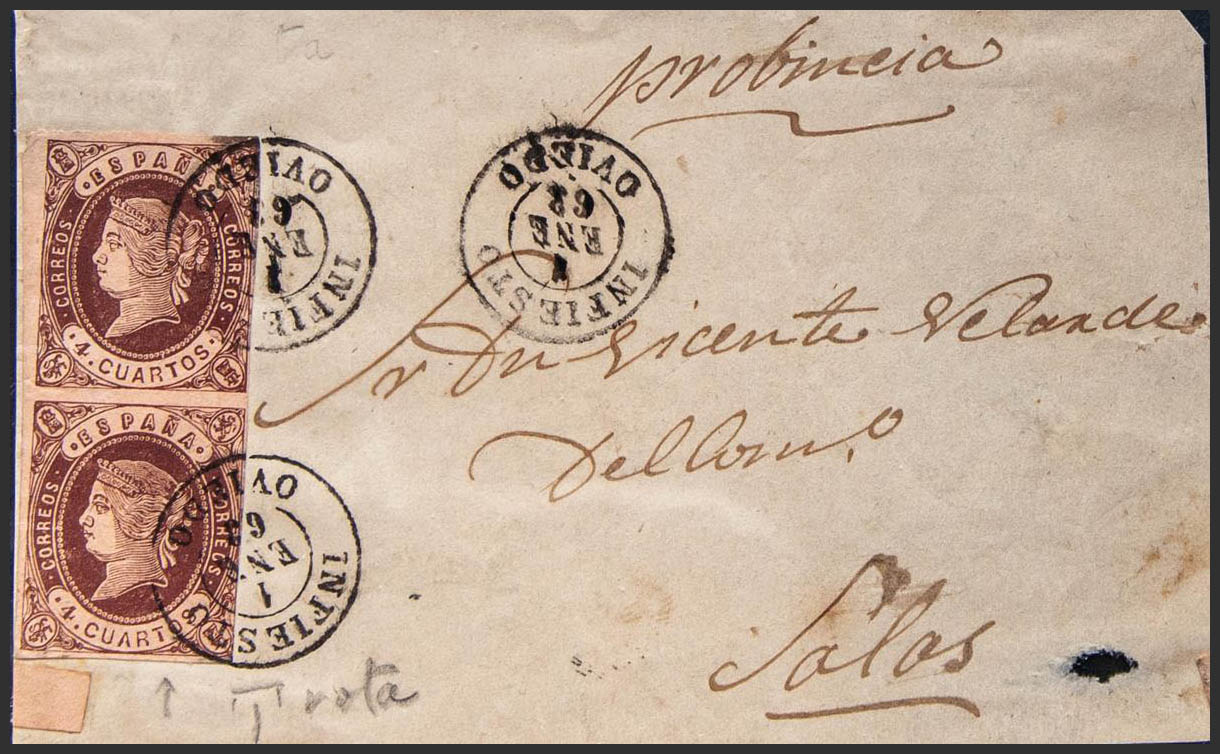 ta
probincia
·ESPAÑA·
CORREOS
CORREOS
·4·CUARTOS·
·ESPAÑA·
CORREOS
CORREOS
·4·CUARTOS·
INFIESTO
1
ENE
62
OVIEDO
INFIESTO
1
ENE
62
OVIEDO
INFIESTO
1
ENE
62
OVIEDO
Sr. Dn Vicente Velarde
Del Com.º
Salas
↑ T rota